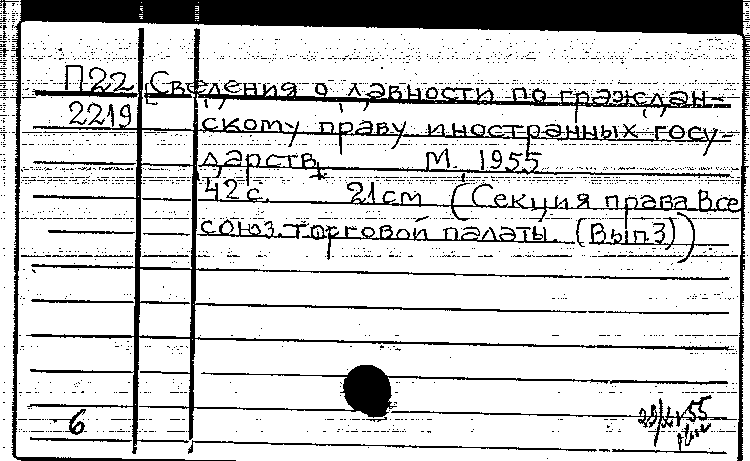 П22 Сведения о давности по граждан-
2219 скому праву иностранных госу-
дарств. М. 1955
42 с. 21 см (Секция права Все
союз. торговой палаты. (Вып 3))
6